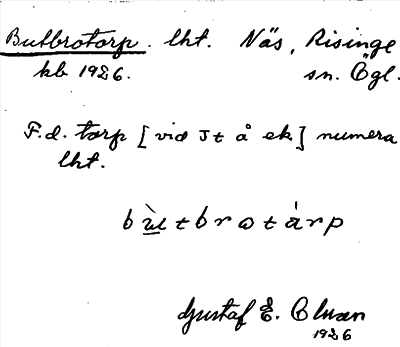 Butbrotorp. lht. Näs, Risinge
kb 1926. sn. Ögl.
F.d. torp [vid Jt å ek] numera
lht.
bùtbrotàrp
Gustaf E.
1926